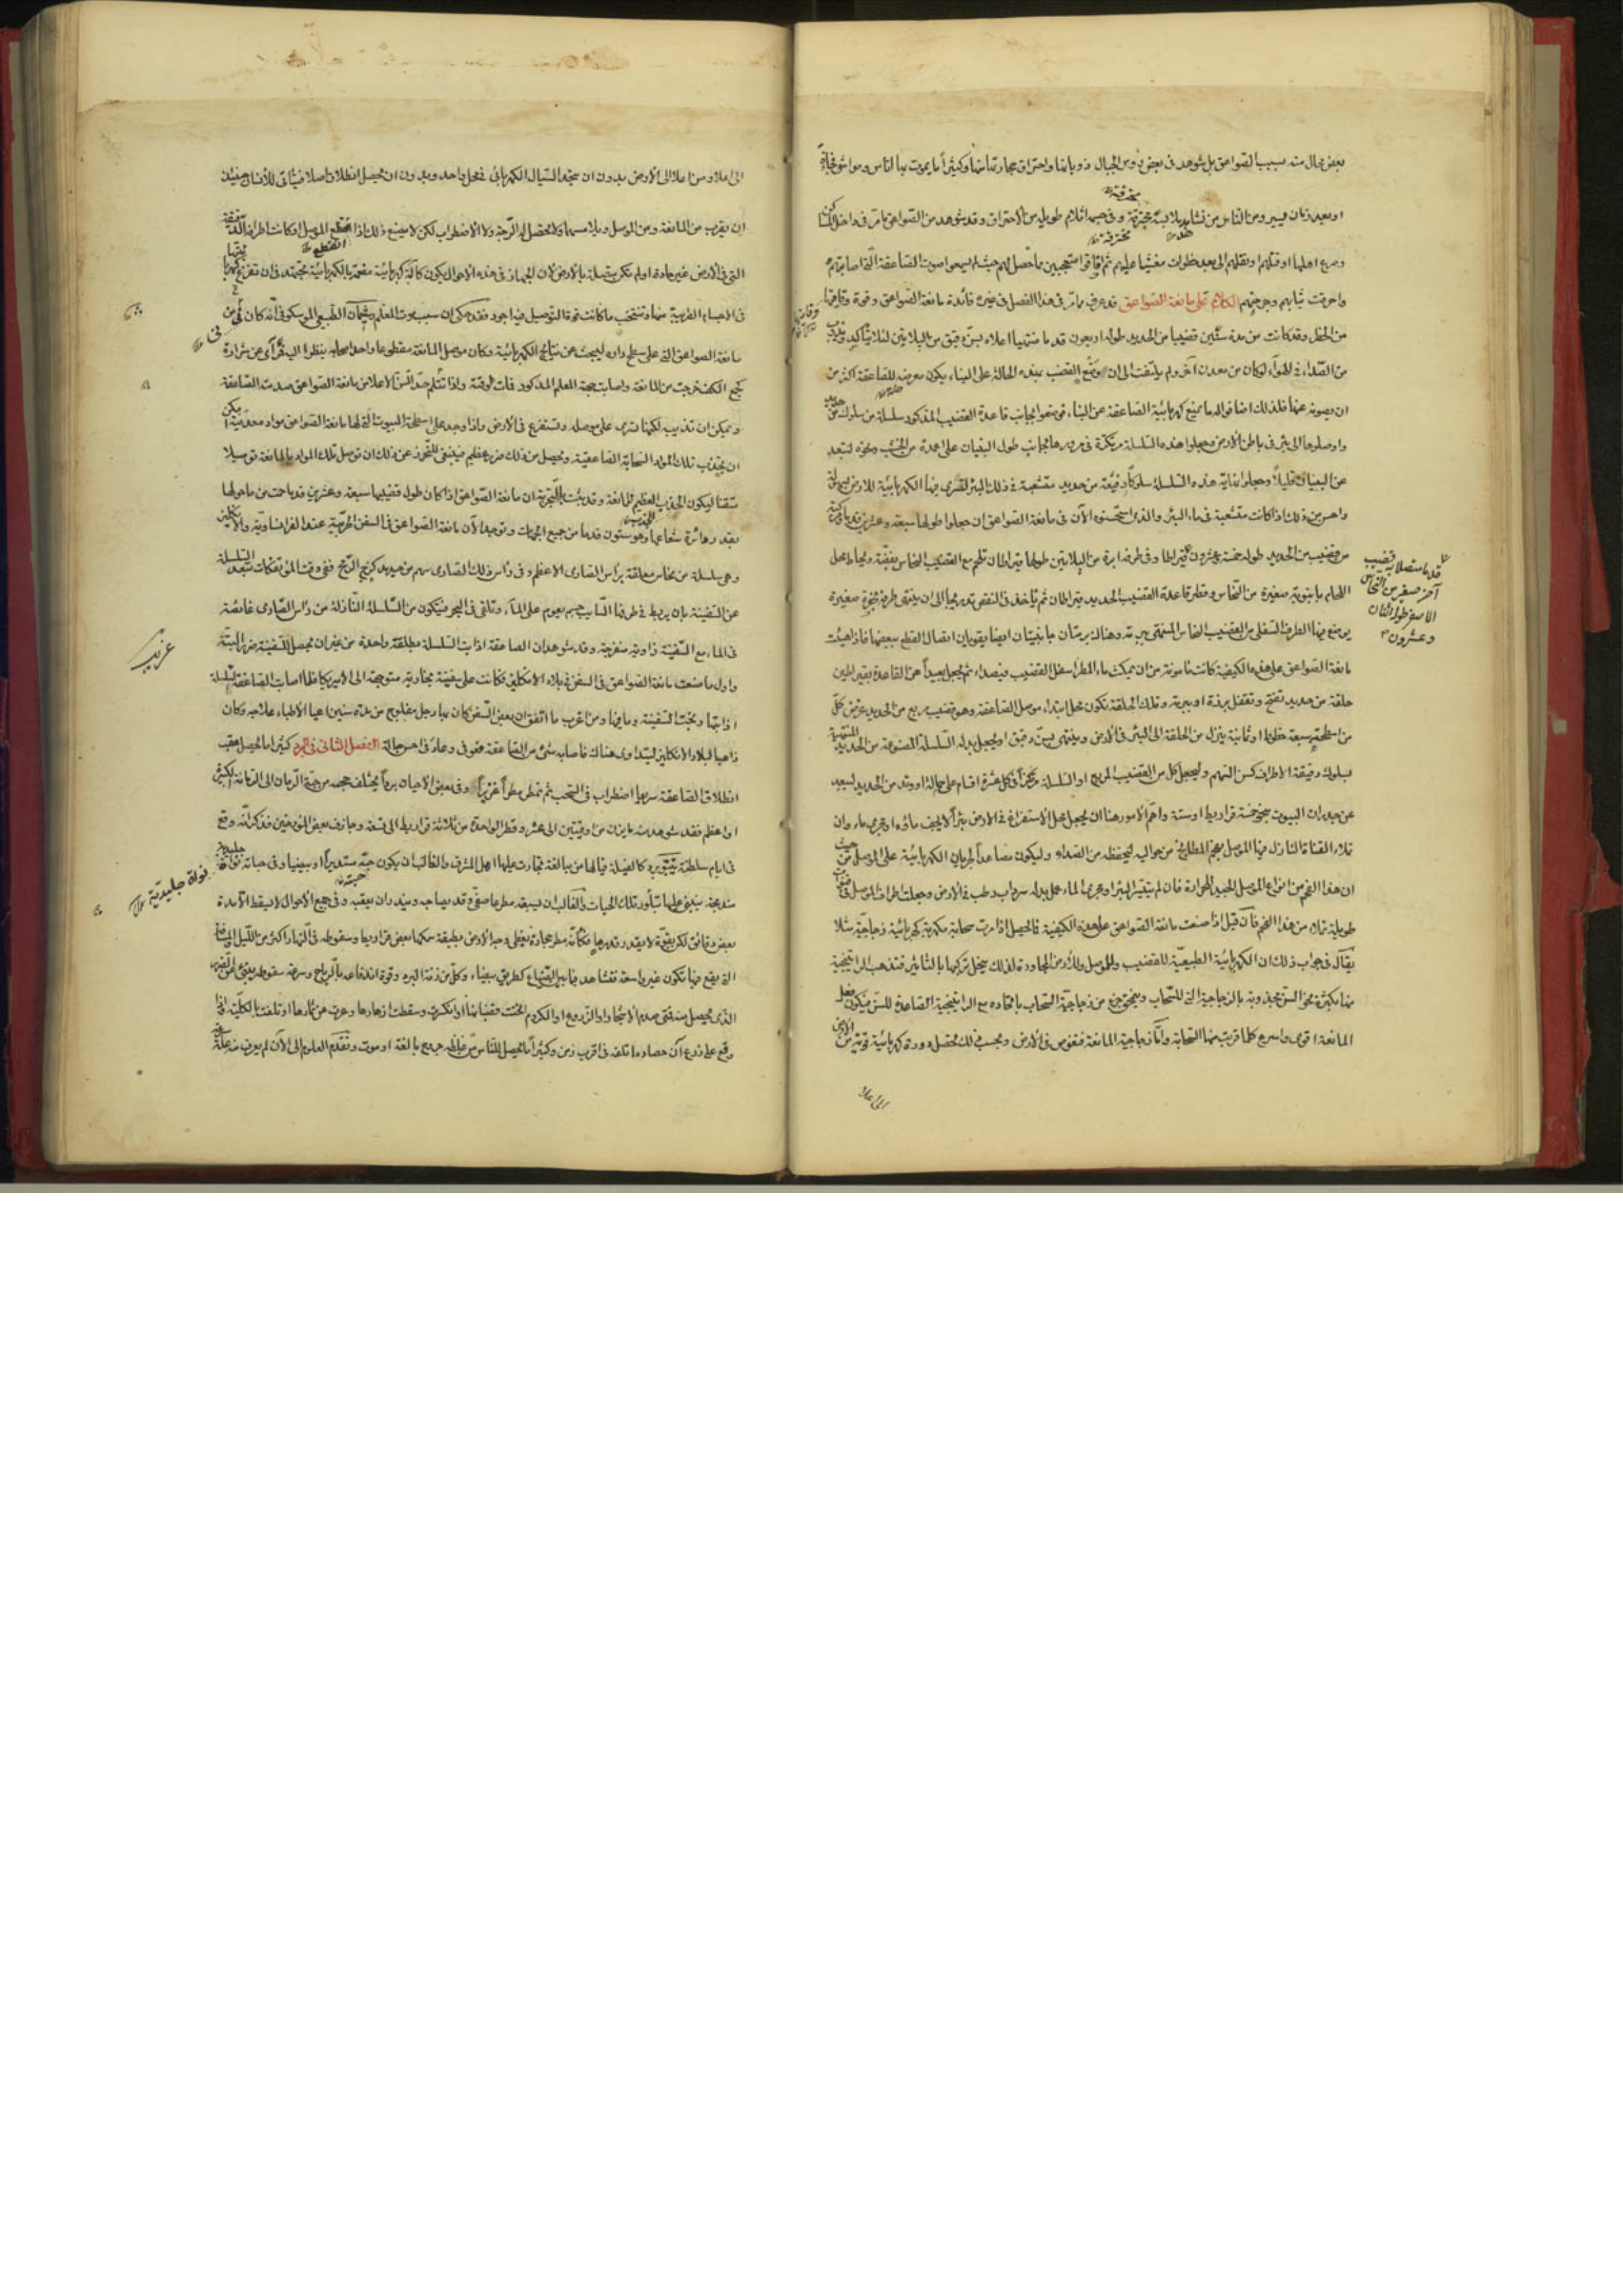 بعض جبال منه بسبب الصواعق بل شوهد في بعض رؤس الجبال ذوبانها واحتراق حجارتها منها وكثيرا ما يموت بها الناس ومواشو فجاءة
محترقة
او بعد زمان يسير ومن الناس من تشاهد ملابسه محترقة وفي جسمه اثلام طويل من الاحتراق وقد شوهد من الصواعق ما مر في داخل
وصرع اهلها او قتلهم ونقلهم الى بعد خطوات مغشيا عليهم ثم افاقوا متعجبين ما حصل لهم حيث لم يسمعوا صوت الصاعقة التي اصابتهم
واحرقت ثيابهم وجرحتهم الكلام على مانعة الصواعق قد عرف مما مر في هذا الفصل في غيره فائدة مانعة الصواعق وقوة وقايتها
من الخطر وقد كانت من مدة سنين قضيبا من الحديد طوله اربعون قدما منتهيا اعلاه بسن دقيق من البلاتين لئلا يتأكد
من الصداء في الهواء لو كان من معدن آخر ولم يلتفت الى ان وضع القضيب بهذه الحالة على البناء يكون معرضه للصاعقة اكثر من
ان يصونه عنها فلذلك اضافوا له ما يمنع كهربائية الصاعقة عن البناء فوضعوا بجانب قاعدة القضيب المذكور سلسلة من سلوك من
حديد
واوصلوها الى بئر في باطن الارض وجعلوا هذه السلسلة مرتكزة في مرورها بجانب طول البنيان على اعمدة من الخشب ونحوه لتبعد
عن البنيان قليلا وجعلوا نهاية هذه السلسلة سلوكا دقيقة من حديد متشعبة في ذلك البئر لتسري منها الكهربائية للارض بسهولة
واحسن من ذلك اذا كانت متشعبة في ماء البئر والذي استحسنوه الآن في مانعة الصواعق ان جعلوا طولها سبعة وعشرين قدما
من قضيب من الحديد طوله خمسة وعشرون وفي طرفه ابرة من البلاتين طولها قيراطان تلحم مع القضيب النحاس بفضة ويحاط محل
قدما متصلا به قضيب
آخر صغير من النحاس
الاصفر طوله اثنان
وعشرون
اللحام باسطوانة صغيرة من النحاس وقطر قاعدة القضيب الحديد قيراطان ثم يأخذ في النقص تدريجيا الى ان ينتهي طرفه بفجوة صغيرة
يوضع فيها الطرف السفلي من القضيب النحاس المنتهي ببرمة وهناك برمتان جانبيتان ايضا يقويان اتصال القطع ببعضها فاذا هيئت
مانعة الصواعق على هذه الكيفية كانت مأمونة من ان يمكث ماء المطر اسفل القضيب فيصداء ثم يجعل بعيدا عن القاعدة بقيراطين
حلقة من حديد تفتح وتقفل برزة او ببرمة وتلك الحلقة تكون محل ابتداء موصل الصاعقة وهو قضيب مربع من الحديد عرض كل
من اسطحته سبعة خطوط او ثمانية ينزل من الحلقة الى البئر في الارض وينتهي بسن دقيق او يجعل بدله السلسلة المصنوعة من الحديد المنتهية
بسلوك دقيقة الاطراف كسن السهم وليجعل كل من القضيب المربع او السلسلة مرتكزا في كل عشرة اقدام على حمالة او وتد من الحديد لتبعد
عن جدران البيوت بنحو خمسة قراريط او ستة واهم الامور هنا ان يجعل محل الاستفراغ في الارض بئرا لا يجف ماؤه او مجرى ماء وان
تملاء القناة النازل فيها الموصل بفحم المطابخ من حواليه ليحفظه من الصداء وليكون مصاعدا لجريان الكهربائية على الموصل من حيث
ان هذا الفحم من انواع الموصل الجيد للحرارة فان لم يتيسر البئر او مجرى الماء عمل بدله سرداب رطب في الارض وجعلت اطراف الموصل في
طويلة تملاء من هذا الفحم فان قيل اذا صنعت مانعة الصواعق على هذه الكيفية فما يحصل اذا مرت سحابة مكهربة كهربائية زجاجية مثلا
يقال في جواب ذلك ان الكهربائية الطبيعية للقضيب وللموصل وللارض المجاورة لذلك ينحل تركيبها بالتأثير فتذهب الراتينجية
منها بكثرة نحو السن مجذوبة بالزجاجية التي للسحاب ويمتزج جزء من زجاجية السحاب باتحاده مع الراتينجية الصاعدة للسن فيكون فعل
المانعة اقوى واسرع كلما قربت منها السحابة واما زجاجية المانعة فتغوص في الارض وبحسب ذلك تحصل دورة كهربائية قوية من الارض
الى اعلا
الى اعلا ومن اعلا الى الارض بدون ان يتحد السيال الكهربائي في محل واحد وبدون ان يحصل انطلاق اصلا فيتأتى للانسان حينئذ
ان يقرب من المانعة ومن الموصل ويلامسهما ولا تحصل له الرجة ولا الاضطراب لكن لا يمتنع ذلك اذا انقطع الموصل او كانت اطرافه
انقطع
التي في الارض غير جادة او لم تكن متصلة بالارض لان الجهاز في هذه الاحوال يكون كآلة كهربائية مفعمة بالكهربائية مجتهدة في ان تفرغ كهربائيتها
في الاجسام القريبة منها وتنتخب ما كانت قوة التوصيل فيه اجود فقد حكي ان سبب موت المعلم ريخمان الطبيعي الموسكوفي انه كان قرب من
مانعة الصواعق التي على سطح داره ليبحث عن نتائج الكهربائية وكان موصل المانعة مقطوعا واحد اصحابه ينظر اليه فرآى عن شرارة
كجمع الكف خرجت من المانعة واصابت جبهة المعلم المذكور فمات لوقته واذا تثلم حد السن الاعلا من مانعة الصواعق صدمته الصاعقة
ويمكن ان تذيب لكنها تسري على موصله وتستفرغ في الارض واذا وجد على اسطحة البيوت التي لها مانعة الصواعق مواد معدنية
يمكن
ان تجذب تلك المواد السحابة الصاعقية ويحصل من ذلك ضرر عظيم فينبغي للتحرز عن ذلك ان توصل تلك المواد بالمانعة توصيلا
متقنا ليكون الجذب العظيم للمانعة وقد ثبت بالتجربة ان مانعة الصواعق اذا كان طول قضيبها سبعة وعشرين قدما حمت من ما حولها
بقدر دائرة شعاعها وهو ستون قدما من جميع الجهات وتوجد الآن مانعة الصواعق في السفن الحربية عند الفرانساوية والانكليز
وهي سلسلة من نحاس معلقة برأس الصاري الاعظم وفي رأس ذلك الصاري سهم من حديد كزج الرمح ففي وقت المؤتفكات تبعد السلسلة
عن السفينة بان يربط في طرفها السائب جسم يعوم على الماء وتلقى في البحر فيتكون من السلسلة النازلة من رأس الصاري غائصة
في الماء مع السفينة زاوية منفرجة وقد شوهد ان الصاعقة اذابت السلسلة مطلقة واحدة من غير ان يحصل للسفينة ضرر البتة
غريب
واول ما صنعت مانعة الصواعق في السفن في بلاد الانكليز فكانت على سفينة تجارية متوجهة الى الامريكا فلما اصابت الصاعقة السلسلة
اذابتها ونجت السفينة وما فيها ومن اغرب ما اتفق ان بعض السفن كان بها رجل مفلوج من مدة سنين اعيا الاطباء علاجه وكان
ذاهبا لبلاد الانكليز ليتداوى هناك فاصابه شئ من الصاعقة فعوفي وعاد في احسن حالة الفصل الثاني في البرد كثيرا ما يحصل عقب
انطلاق الصاعقة سريعا اضطراب في السحب ثم تمطر مطرا غزيرا وفي بعض الاحيان بردا يختلف حجمه من حبة الرمان الى الرمانة الكبيرة
او اعظم فقد شوهد منه ما يزن من اوقيتين الى عشر وقطر الواحدة من ثلاثة قراريط الى تسعة وجازف بعض المؤرخين فذكر انه وقع
في ايام سلطنة برد كالفيلة فيالها من مبالغة تمارت عليها اهل المشرق والغالب ان يكون حبه مستديرا او بيضيا وفي حباته نواة
جليدية
نواة جليدية
مندمجة ينبغي عليها تبلور تلك الحبات والغالب ان يسبقه مطر عاصفي وقد يصاحبه ويندر ان يعقبه وفي جميع الاحوال لا يسقط الا مدة
بعض دقائق لكن بقوة لا يقدر قدرها فكأنه مطر حجارة يغطي وجه الارض بطبقة سمكها بعض قراريط وسقوطه في النهار اكثر من الليل
التي يقع فيها تكون غير واسعة فتشاهد فيما بين الضياع كطريق بيضاء وكل من زنة البرد وقوة اندفاعه بالرياح وسرعة سقوطه ينبئ عن الضرر
الذي يحصل منه فمتى صدم الاشجار او الزروع او الكروم انحنت قضبانها او انكسرت وسقطت ازهارها وعريت عن ثمارها او تلفت بالكلية واذا
وقع على زرع آن حصاده اتلفه في اقرب زمن وكثيرا ما يحصل للناس من غلظه جروح بالغة او موت وتقدم العلوم الى الآن لم يعرف منه علة